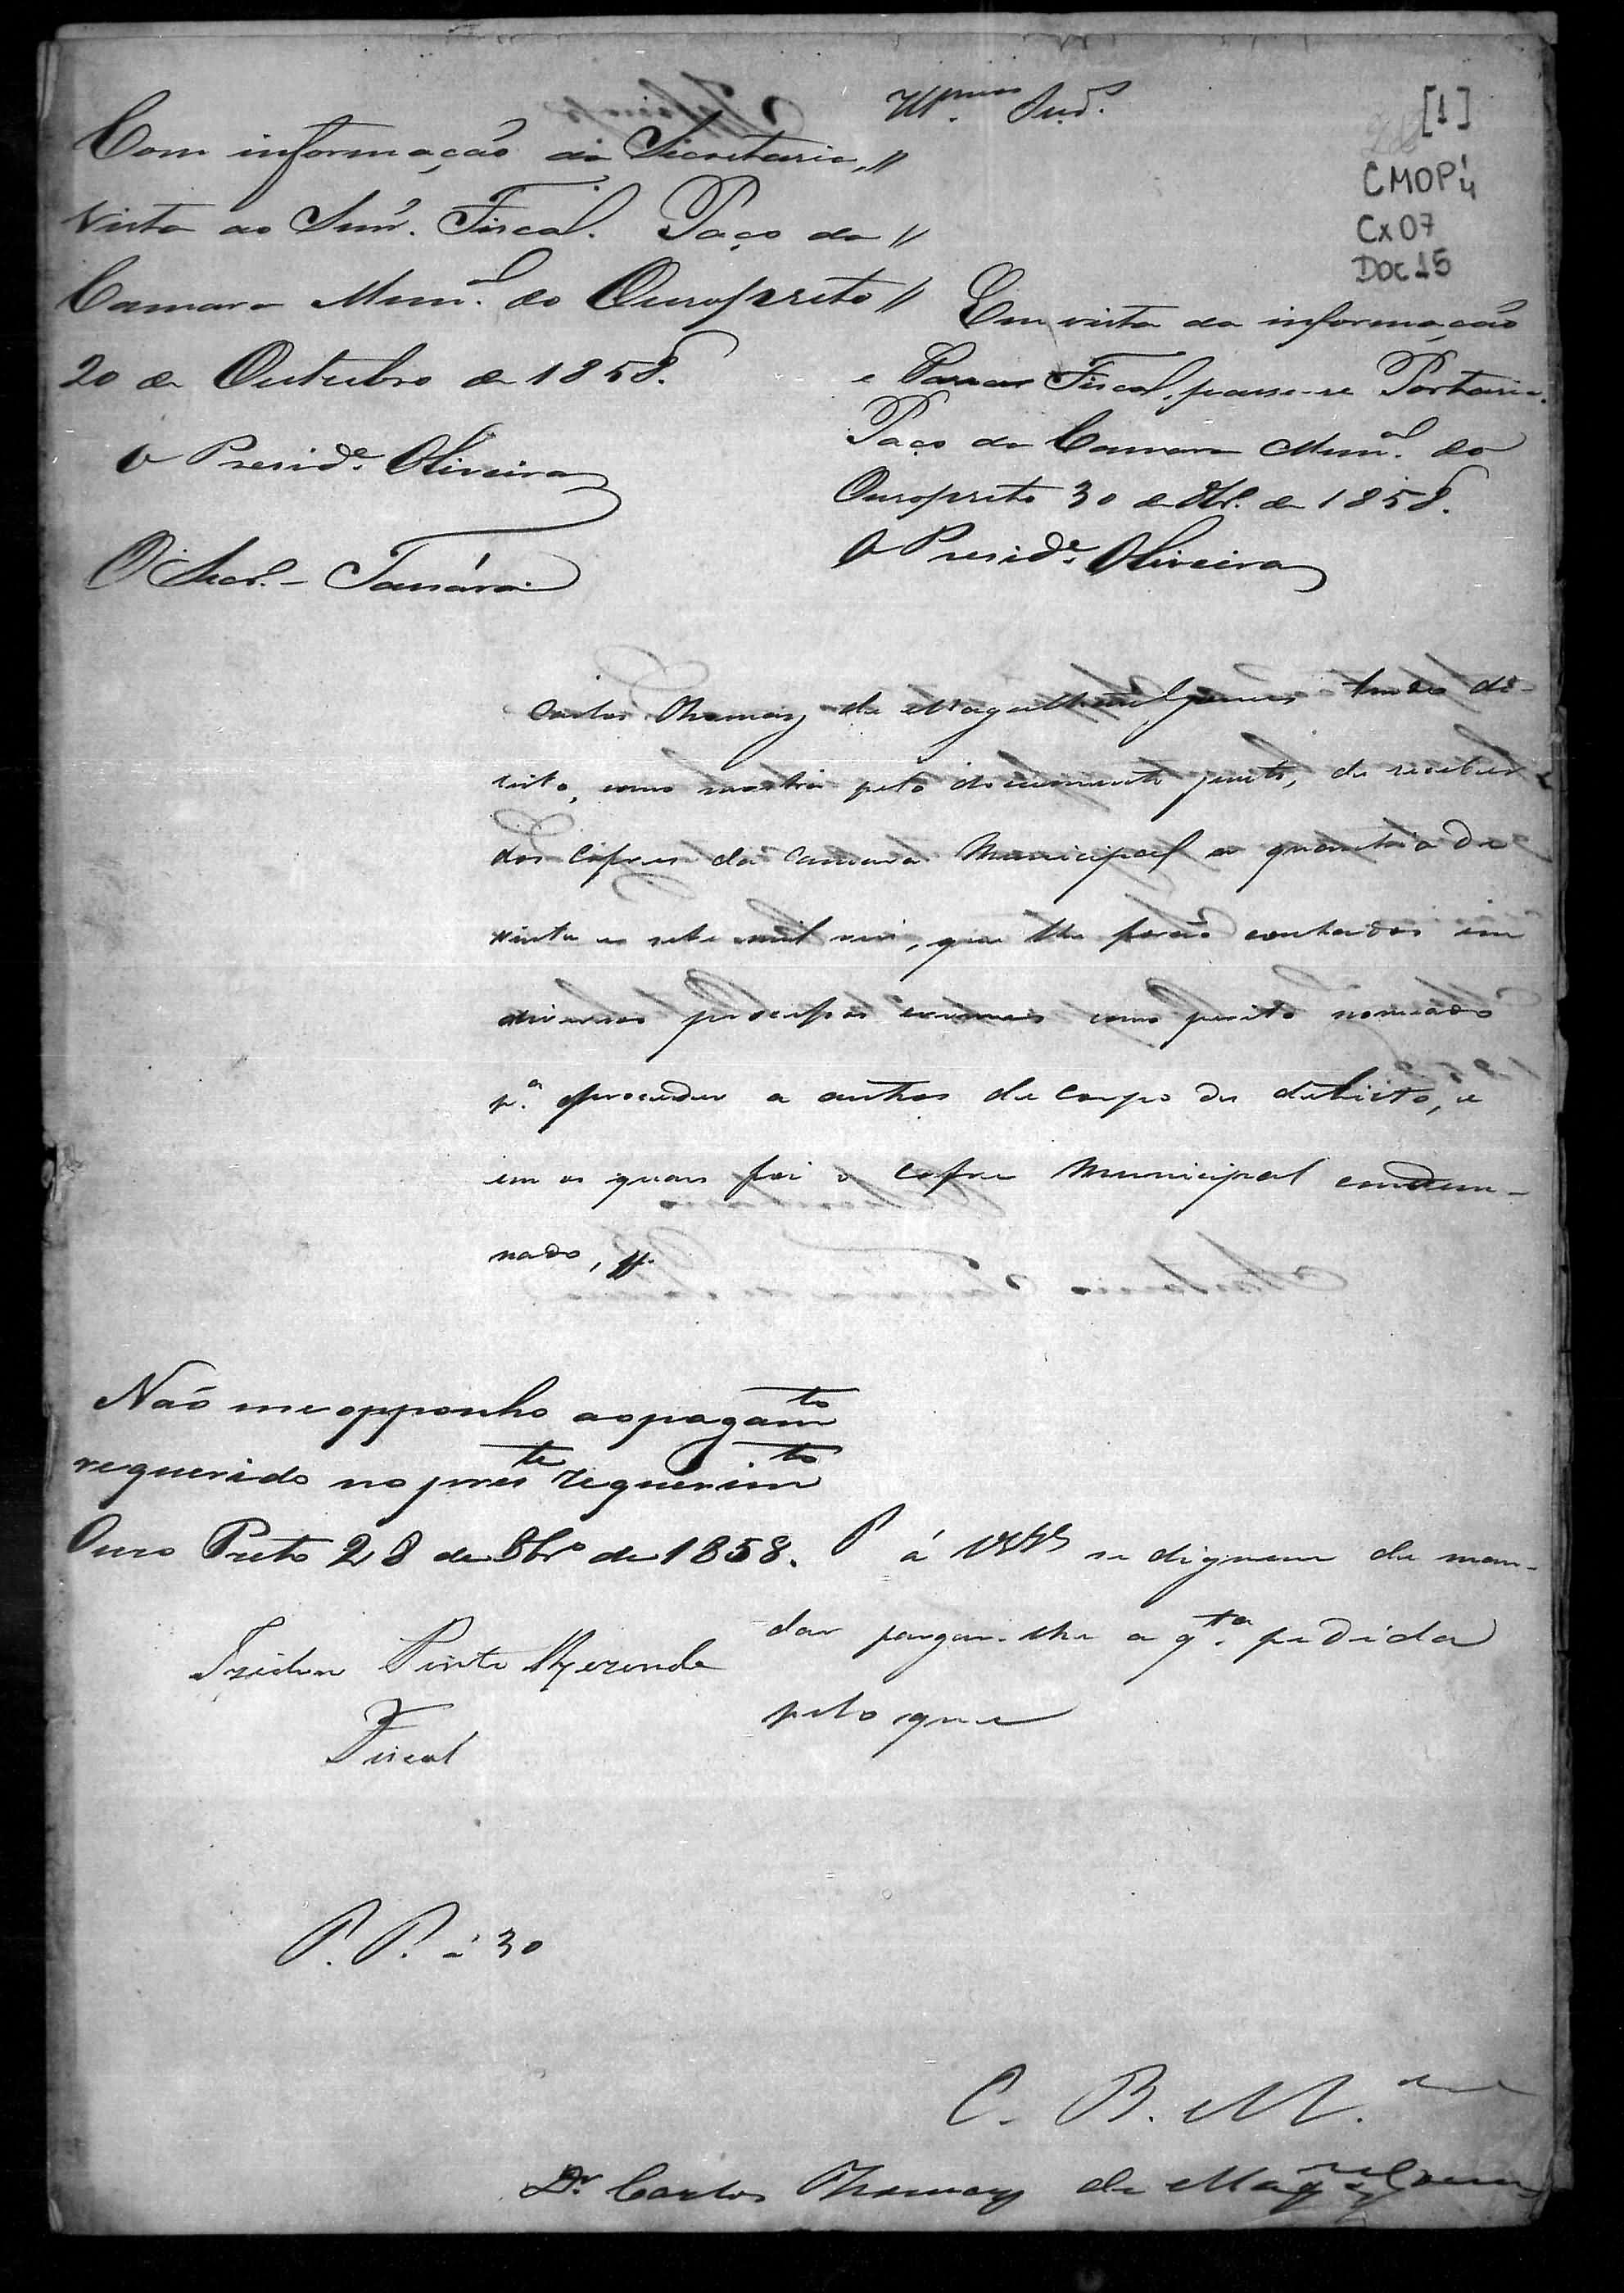 Ill.mos Snr.es
[1]
CMOP 4
Cx 07
Doc 15
Com informação da Secretaria, //
vista ao Snr. Fiscal. Paço da //
Camara Mun.al do Ouropreto //
20 de Outubro de 1858.
O Presid.e Oliveira
O Secr. - Tassára
Em vista da informação
e Parecer Fiscal, passe-se Portaria.
Paço da Camara Mun.al do
Ouropreto 30 de 8br. de 1858.
O Presid.e Oliveira
Carlos Thomaz de Magalhães Gomes tendo di-
reito, como mostra pelo documento junto, de receber
dos cofres da Camara Municipal a quantia de
vinte e sete mil reis, que lhe forão contados em
diversos processos crimes como perito nomeado
p.a proceder a authos de corpo de delicto, e
em os quaes foi o cofre Municipal condem-
nado, pp.
Não me opponho ao pagam.to
requerido no pres.te requerim.to
Ouro Preto 28 de 8br.o de 1858.
Pinto Rezende
Fiscal
P á VSSas se dignem de man-
dar pagar-lhe a q.ta pedida
pelo que
P. P. a 30
E. R. M.ce
Dr. Carlos Thomaz de Mag.es Gomes